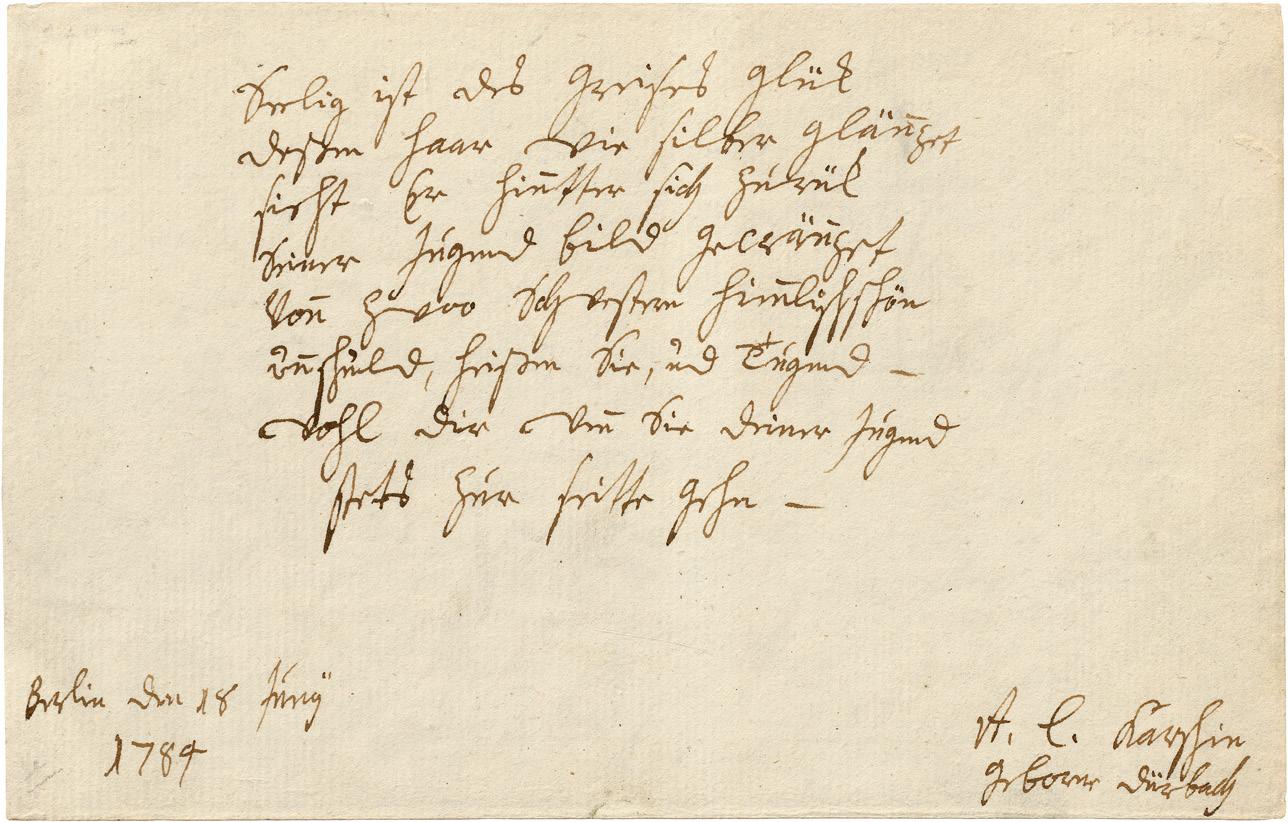 Seelig ist des Greises Glük
deßen haar wie silber glänn̄zet
sieht Er hinn̄tter sich zúrük
Seiner Júgend bild gecränn̄zet
Vonn̄ zwoo Schwestern himm̄lischschön
Unn̄schúld, heißen Sie, úd Túgend –
wohl dir wenn̄ Sie deiner Júgend
stets zúr seitte gehn –
Berlin den 18 Júnÿ
1784
A. L. Karschin
geborne Dürbach